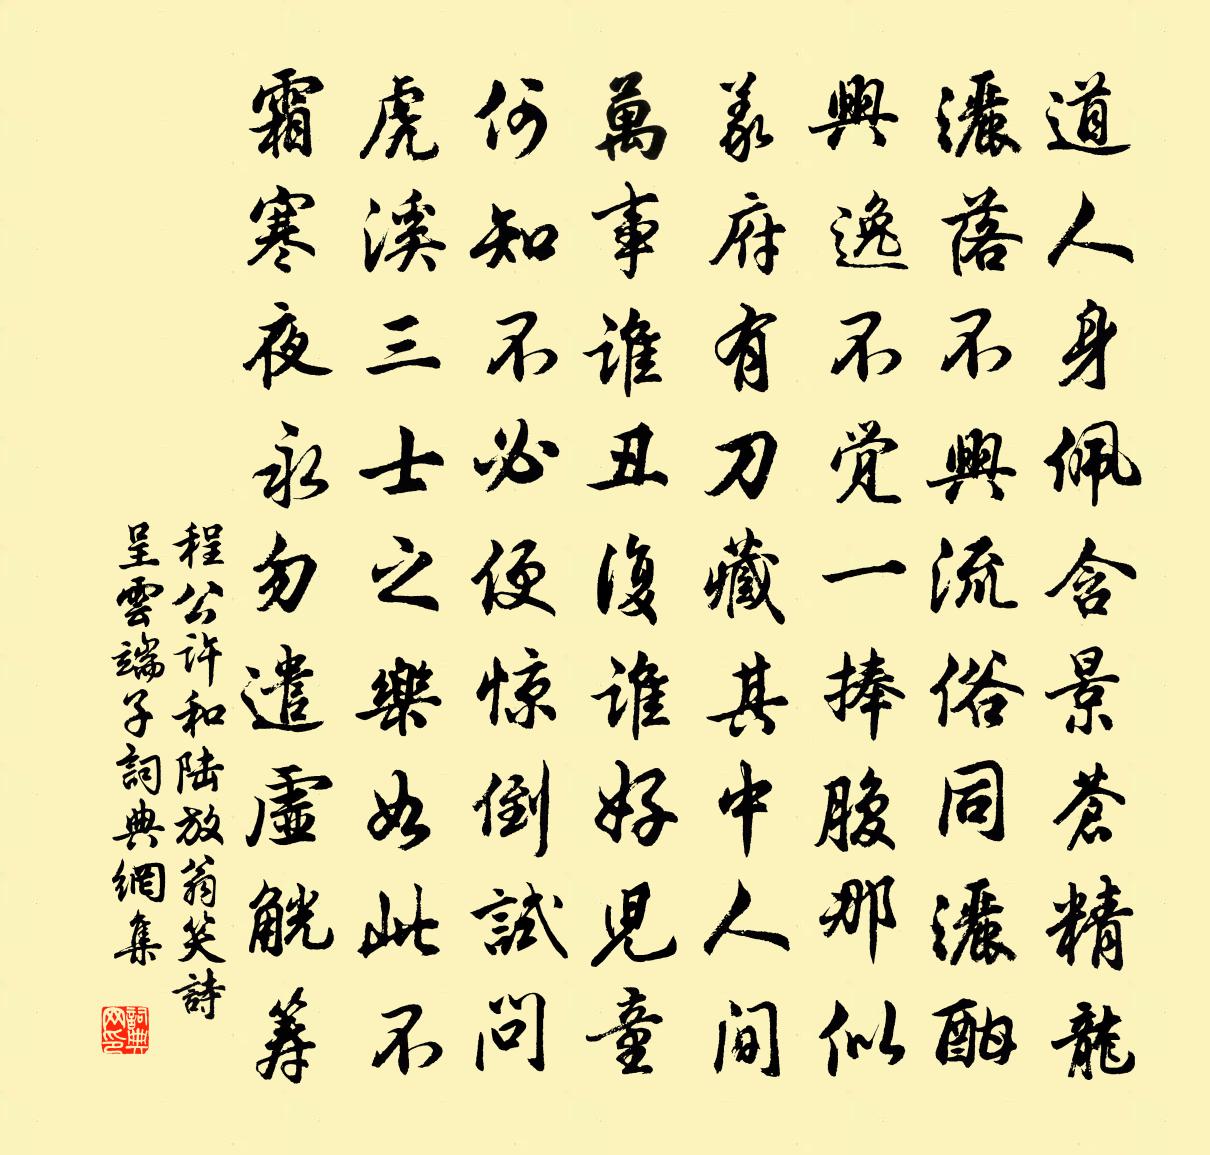 道人身佩含景蒼精龍
灑落不興流俗同灑酣
興逸不觉一捧腹那似
義府有刀藏其中人间
萬事誰丑復誰好児童
何知不必便惊倒試问
虎溪三士之樂如此不
霜寒夜永勿遣虛觥筹
程公许和陆放翁笑詩
呈雲端子詞典網集
詞典网印